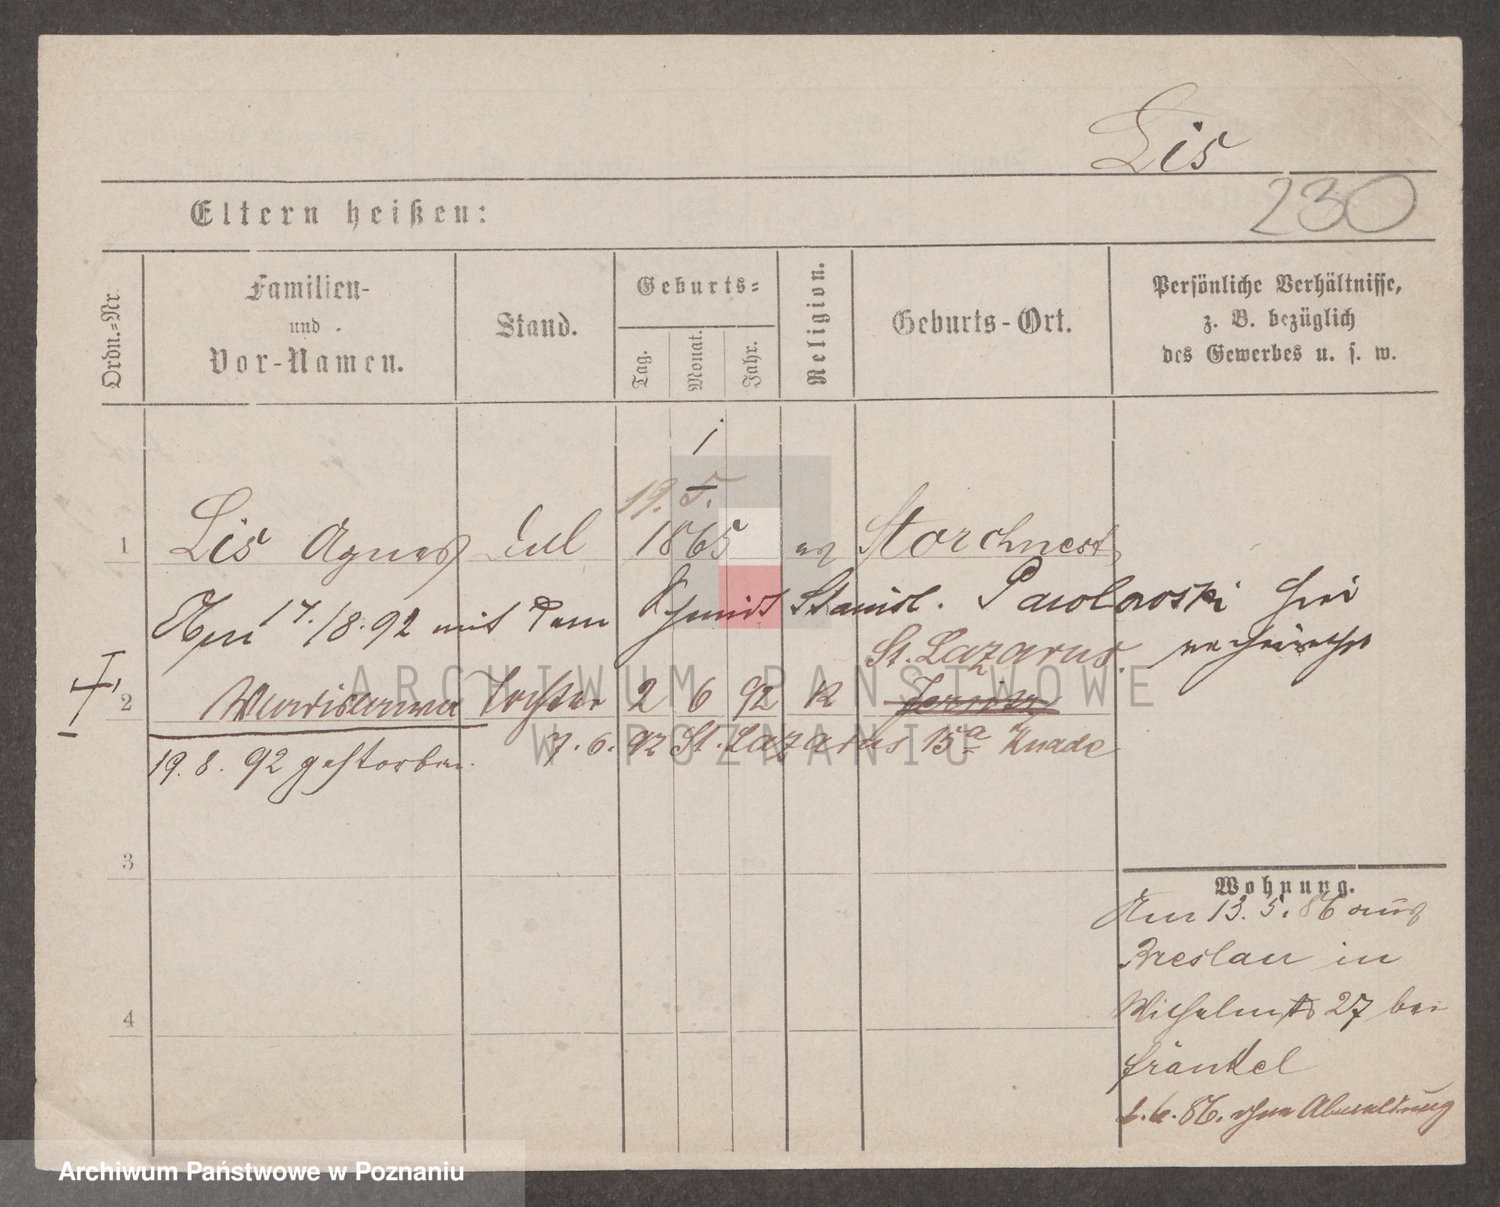 Lis
230
Eltern heißen:
Ordn.=Nr.
Familien-
und
Vor-Namen.
Stand.
Geburts=
Tag.
Monat.
Jahr.
Religion.
Geburts-Ort.
Persönliche Verhältnisse,
z. B. bezüglich
des Gewerbes u. s. w.
19. 5.
1 Lis Agnes 1865 Storchnest
Am 17./8.92 mit dem Schmidt Stanisl. Pawlowski hier
St. Lazarus. verheirathet
2 Wladislawa Tochter 2 6 92 k
7. 6. 92 St. Lazarus 15a Knade
19. 8. 92 gestorben.
3
4
Wohnung.
Am 13. 5. 86 aus
Breslau in
Wilhelmstr 27 bei
Fränkel
6. 6. 86. ohne Abmeldung
ARCHIWUM PAŃSTWOWE
W POZNANIU
Archiwum Państwowe w Poznaniu